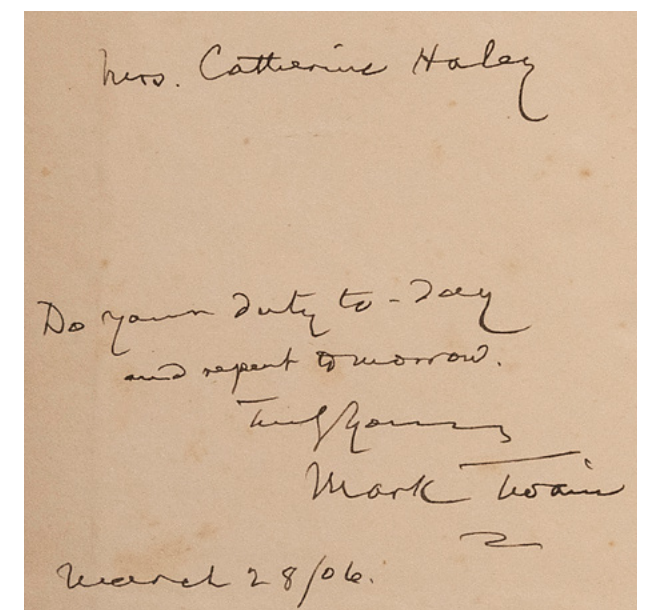 Mrs. Catherine Haley
Do your duty to-day
and repent tomorrow.
Truly Yours
Mark Twain
March 28/06.